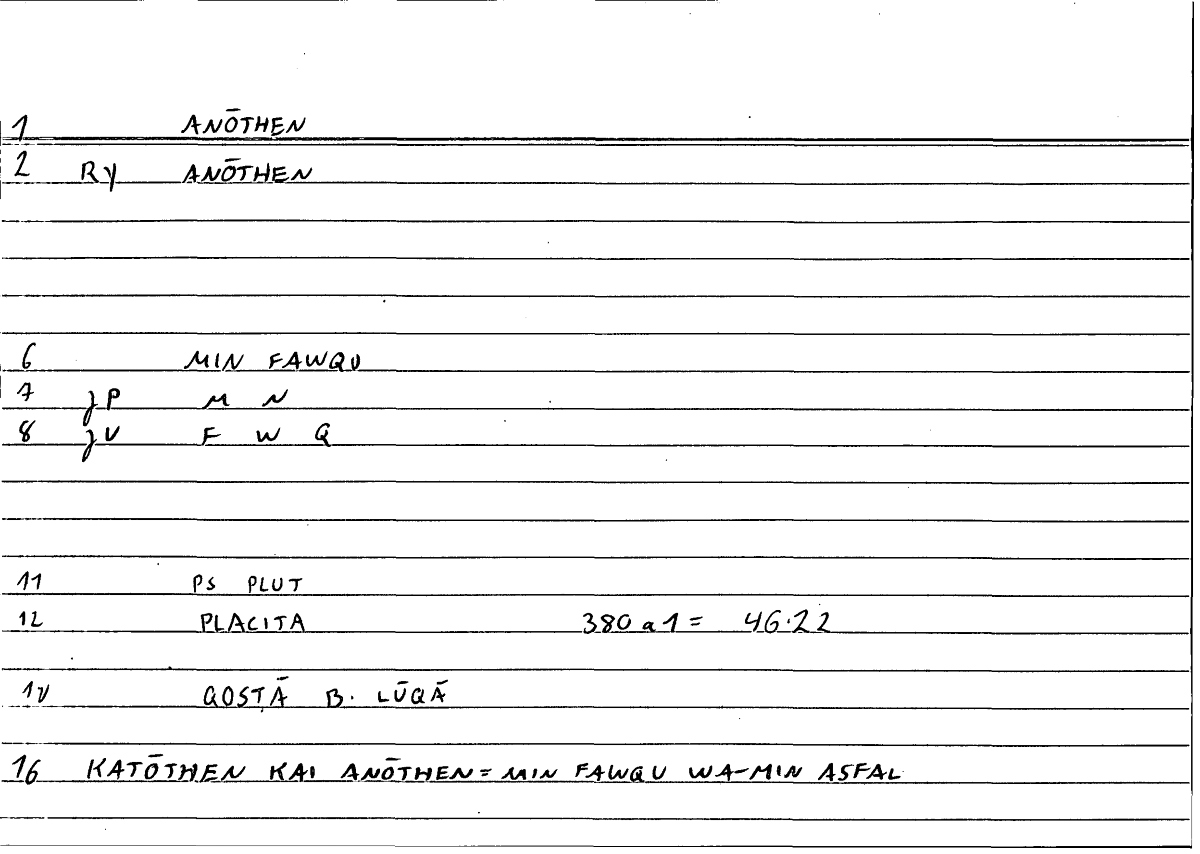 1 ANŌTHEN
2 Rγ ANŌTHEN
6 MIN FAWQU
7 γP M N
8 γU F W Q
11 PS PLUT
12 PLACITA 380 a 1 = 46.22
14 QOSṬĀ B. LŪQĀ
16 KATŌTHEN KAI ANŌTHEN = MIN FAWQU WA-MIN ASFAL